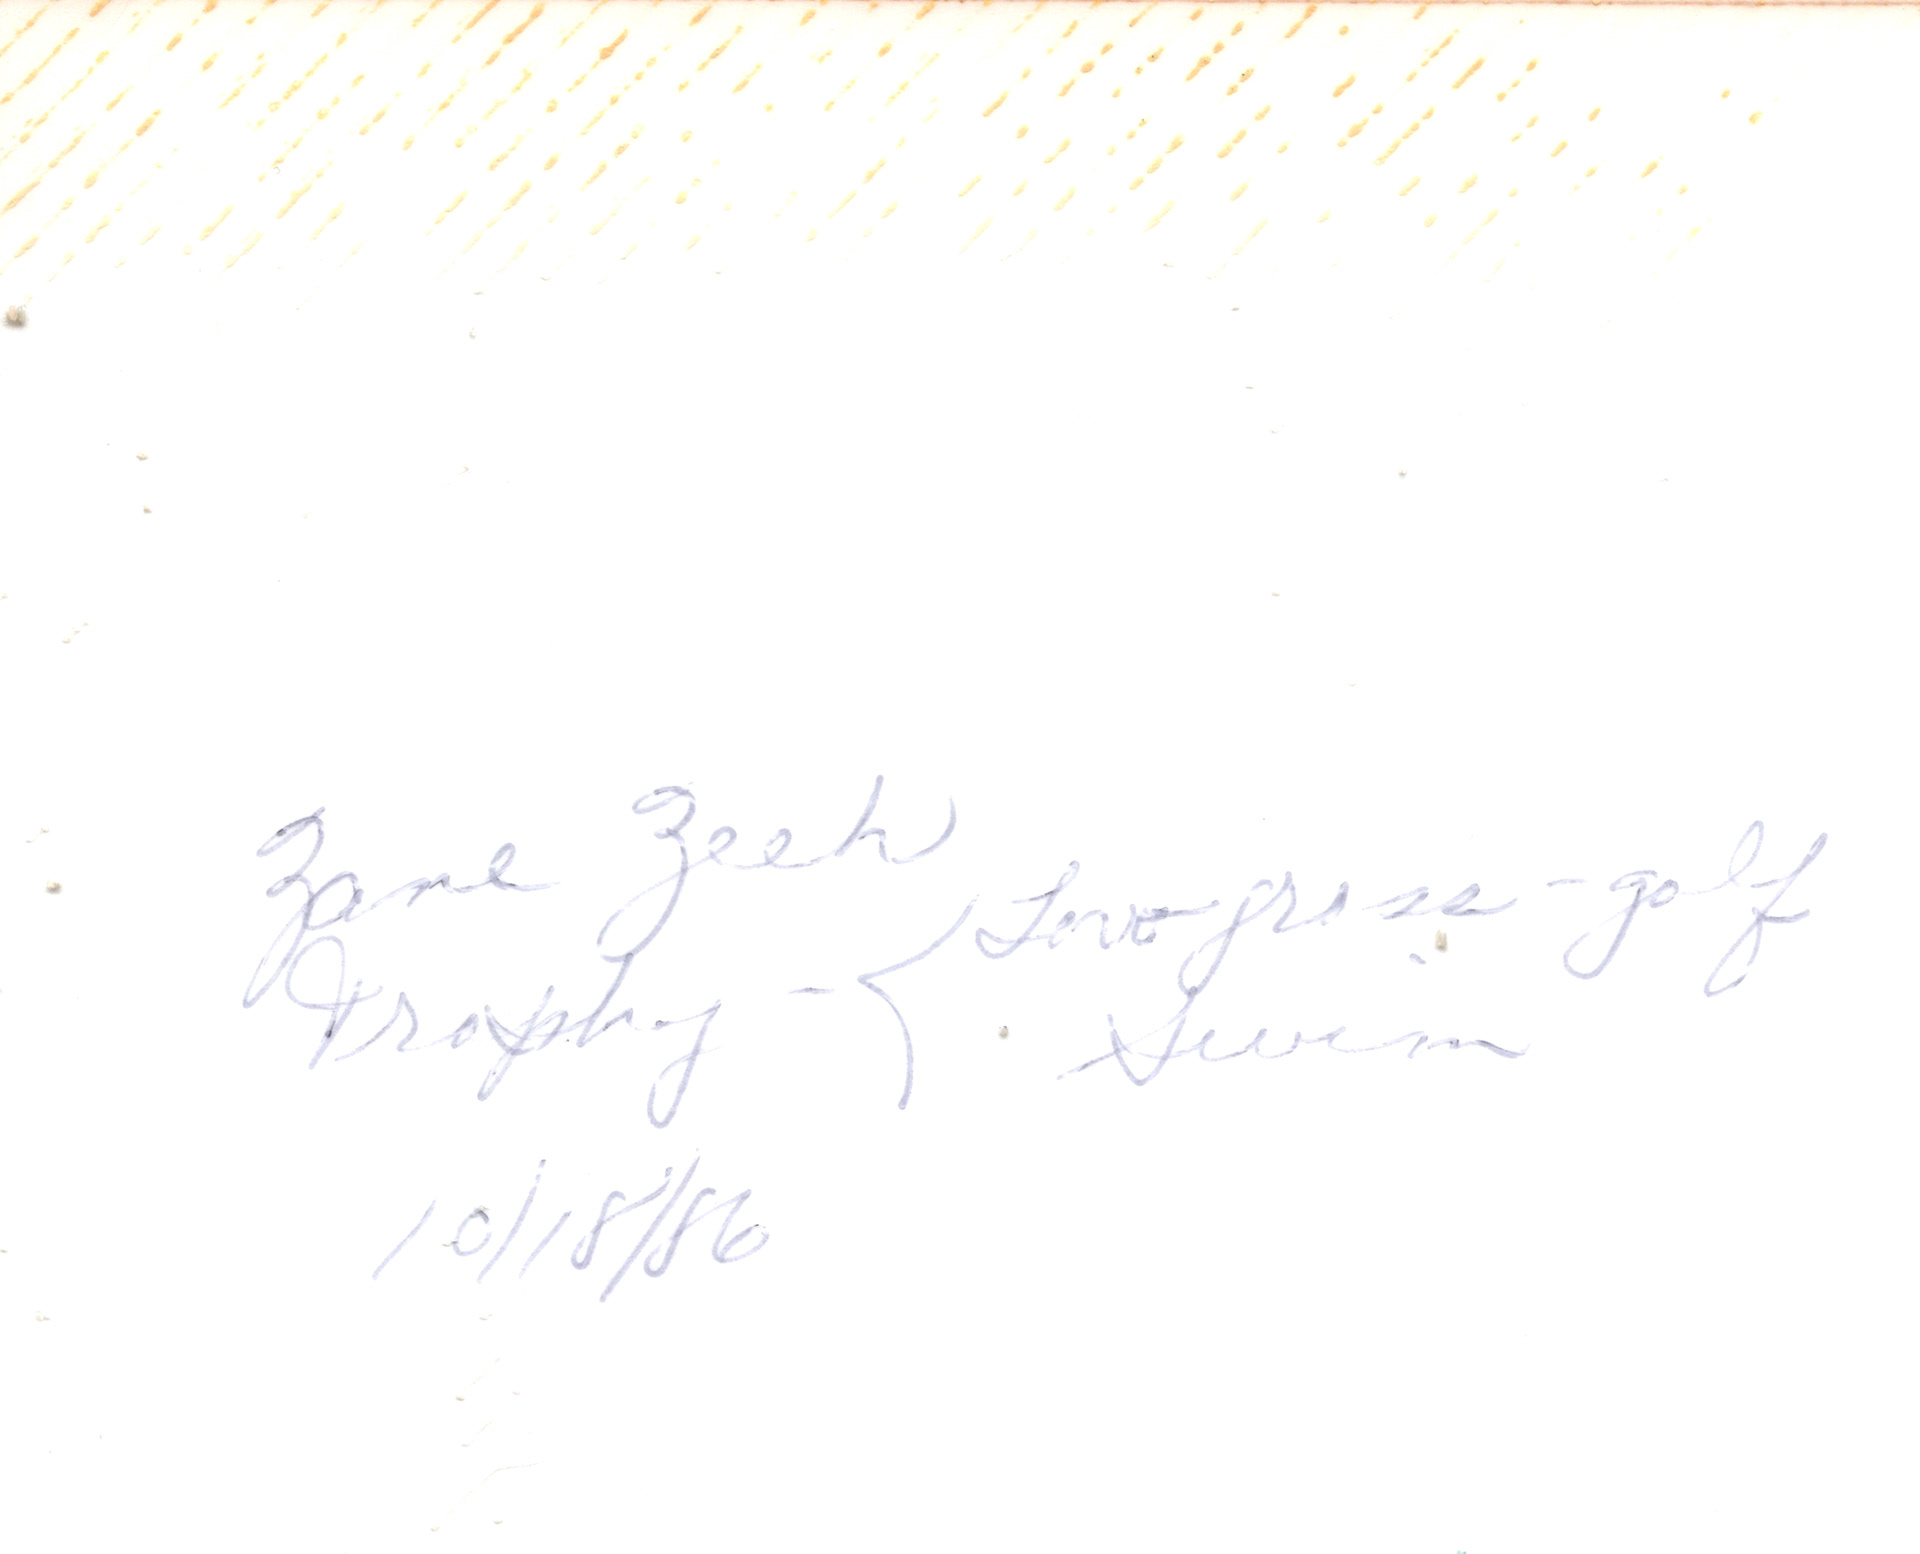 Zane Zeeh
Trophy - { Low gross - golf
Swim
10/18/86